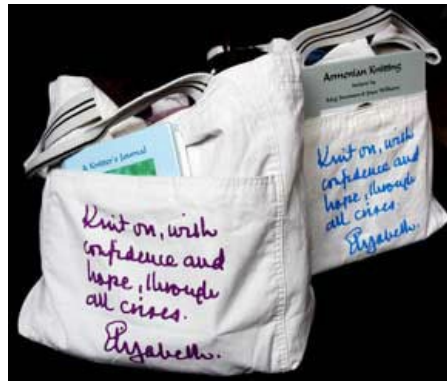 A Knitter's Journal
Knit on, with
confidence and
hope, through
all crises.
Elizabeth.
Armenian Knitting
Meg Swansen & Joyce Williams
Knit on, with
confidence and
hope, through
all crises.
Elizabeth.